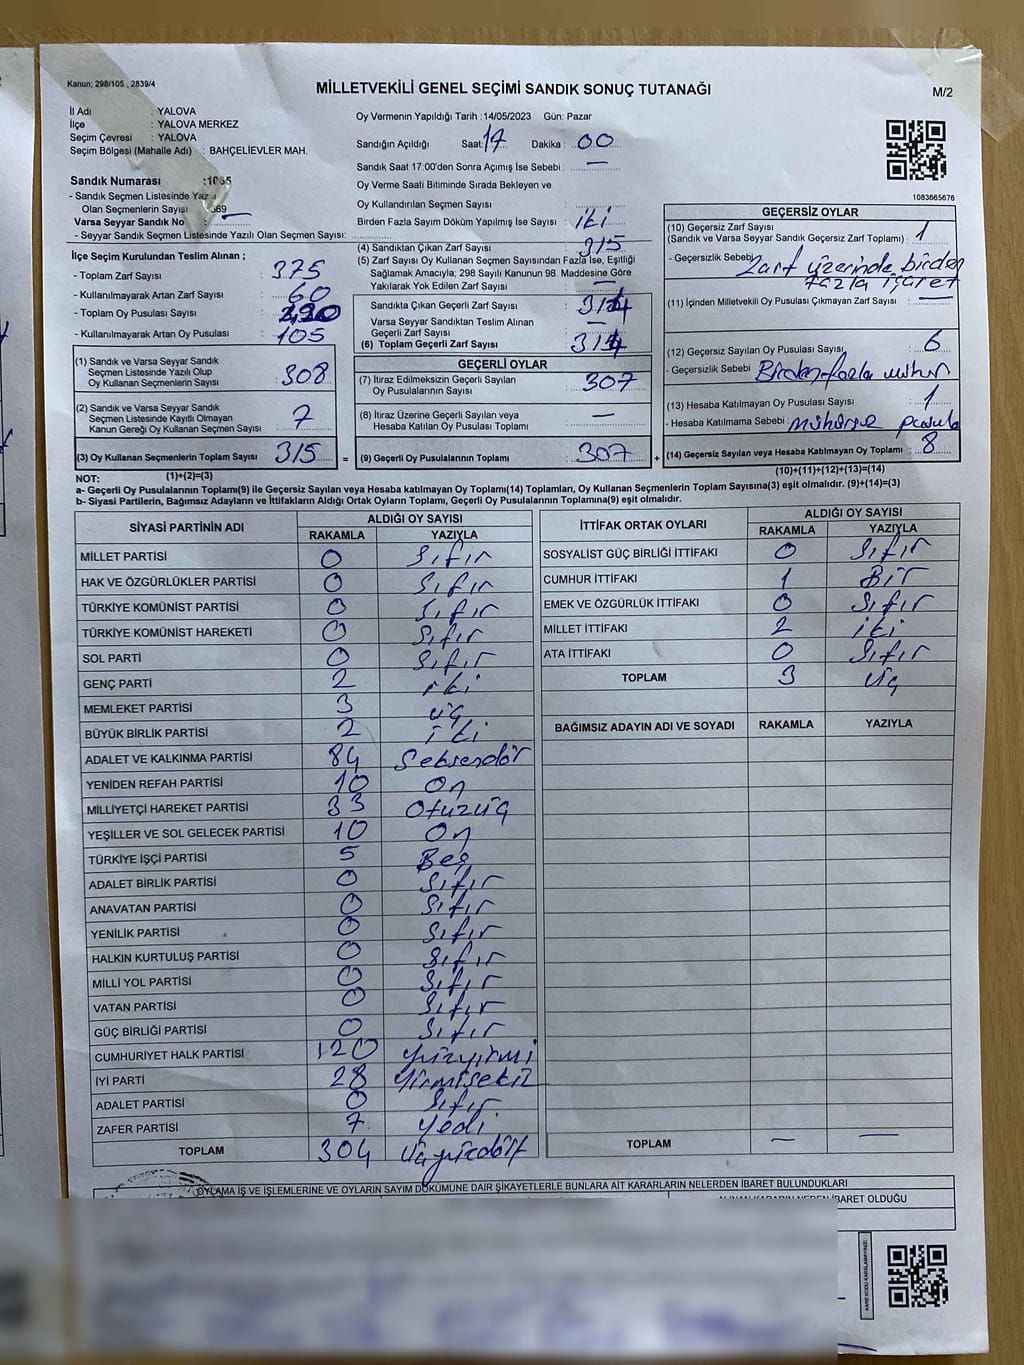 Kanun; 298/105 , 2839/4
MİLLETVEKİLİ GENEL SEÇİMİ SANDIK SONUÇ TUTANAĞI
M/2
İl Adı : YALOVA
İlçe : YALOVA MERKEZ
Seçim Çevresi : YALOVA
Seçim Bölgesi (Mahalle Adı) : BAHÇELİEVLER MAH.
Sandık Numarası
- Sandık Seçmen Listesinde
Olan Seçmenlerin Sayısı
Varsa Seyyar Sandık No
- Seyyar Sandık Seçmen Listesinde Yazılı Olan Seçmen Sayısı:
Oy Vermenin Yapıldığı Tarih :14/05/2023 Gün: Pazar
Sandığın Açıldığı Saat: 17 Dakika : 00
Sandık Saat 17:00'den Sonra Açımış İse Sebebi : —
Oy Verme Saati Bitiminde Sırada Bekleyen ve
Oy Kullandırılan Seçmen Sayısı :
Birden Fazla Sayım Döküm Yapılmış İse Sayısı : iki
1083665676
İlçe Seçim Kurulundan Teslim Alınan ;
- Toplam Zarf Sayısı : 375
- Kullanılmayarak Artan Zarf Sayısı : 60
- Toplam Oy Pusulası Sayısı :
- Kullanılmayarak Artan Oy Pusulası : 105
(1) Sandık ve Varsa Seyyar Sandık
Seçmen Listesinde Yazılı Olup
Oy Kullanan Seçmenlerin Sayısı : 308
(2) Sandık ve Varsa Seyyar Sandık
Seçmen Listesinde Kayıtlı Olmayan
Kanun Gereği Oy Kullanan Seçmen Sayısı : 7
(3) Oy Kullanan Seçmenlerin Toplam Sayısı : 315
(4) Sandıktan Çıkan Zarf Sayısı : 315
(5) Zarf Sayısı Oy Kullanan Seçmen Sayısından Fazla İse, Eşitliği
Sağlamak Amacıyla; 298 Sayılı Kanunun 98. Maddesine Göre
Yakılarak Yok Edilen Zarf Sayısı : —
Sandıkta Çıkan Geçerli Zarf Sayısı : 314
Varsa Seyyar Sandıktan Teslim Alınan
Geçerli Zarf Sayısı : —
(6) Toplam Geçerli Zarf Sayısı : 314
GEÇERLİ OYLAR
(7) İtiraz Edilmeksizin Geçerli Sayılan
Oy Pusulalarının Sayısı : 307
(8) İtiraz Üzerine Geçerli Sayılan veya
Hesaba Katılan Oy Pusulası Toplamı : —
= (9) Geçerli Oy Pusulalarının Toplamı : 307 +
GEÇERSİZ OYLAR
(10) Geçersiz Zarf Sayısı
(Sandık ve Varsa Seyyar Sandık Geçersiz Zarf Toplamı) : 1
- Geçersizlik Sebebi Zarf üzerinde birden
fazla işaret
(11) İçinden Milletvekili Oy Pusulası Çıkmayan Zarf Sayısı : —
(12) Geçersiz Sayılan Oy Pusulası Sayısı : 6
- Geçersizlik Sebebi Birden fazla mühür
(13) Hesaba Katılmayan Oy Pusulası Sayısı : 1
- Hesaba Katılmama Sebebi mühürsüz pusula
(14) Geçersiz Sayılan veya Hesaba Katılmayan Oy Toplamı : 8
NOT: (1)+(2)=(3)
(10)+(11)+(12)+(13)=(14)
a- Geçerli Oy Pusulalarının Toplamı(9) ile Geçersiz Sayılan veya Hesaba katılmayan Oy Toplamı(14) Toplamları, Oy Kullanan Seçmenlerin Toplam Sayısına(3) eşit olmalıdır. (9)+(14)=(3)
b- Siyasi Partilerin, Bağımsız Adayların ve İttifakların Aldığı Ortak Oyların Toplamı, Geçerli Oy Pusulalarının Toplamına(9) eşit olmalıdır.
SİYASİ PARTİNİN ADI ALDIĞI OY SAYISI
RAKAMLA YAZIYLA
MİLLET PARTİSİ 0 Sıfır
HAK VE ÖZGÜRLÜKLER PARTİSİ 0 Sıfır
TÜRKİYE KOMÜNİST PARTİSİ 0 Sıfır
TÜRKİYE KOMÜNİST HAREKETİ 0 Sıfır
SOL PARTİ 0 Sıfır
GENÇ PARTİ 2 iki
MEMLEKET PARTİSİ 3 üç
BÜYÜK BİRLİK PARTİSİ 2 iki
ADALET VE KALKINMA PARTİSİ 84 Seksendör
YENİDEN REFAH PARTİSİ 10 On
MİLLİYETÇİ HAREKET PARTİSİ 33 Otuzüç
YEŞİLLER VE SOL GELECEK PARTİSİ 10 On
TÜRKİYE İŞÇİ PARTİSİ 5 Beş
ADALET BİRLİK PARTİSİ 0 Sıfır
ANAVATAN PARTİSİ 0 Sıfır
YENİLİK PARTİSİ 0 Sıfır
HALKIN KURTULUŞ PARTİSİ 0 Sıfır
MİLLİ YOL PARTİSİ 0 Sıfır
VATAN PARTİSİ 0 Sıfır
GÜÇ BİRLİĞİ PARTİSİ 0 Sıfır
CUMHURİYET HALK PARTİSİ 120 yüzyirmi
İYİ PARTİ 28 Yirmisekiz
ADALET PARTİSİ 0 Sıfır
ZAFER PARTİSİ 7 yedi
TOPLAM 304 üçyüzdört
İTTİFAK ORTAK OYLARI ALDIĞI OY SAYISI
RAKAMLA YAZIYLA
SOSYALİST GÜÇ BİRLİĞİ İTTİFAKI 0 Sıfır
CUMHUR İTTİFAKI 1 Bir
EMEK VE ÖZGÜRLÜK İTTİFAKI 0 Sıfır
MİLLET İTTİFAKI 2 iki
ATA İTTİFAKI 0 Sıfır
TOPLAM 3 üç
BAĞIMSIZ ADAYIN ADI VE SOYADI RAKAMLA YAZIYLA
TOPLAM — —
OYLAMA İŞ VE İŞLEMLERİNE VE OYLARIN SAYIM DÖKÜMÜNE DAİR ŞİKAYETLERLE BUNLARA AİT KARARLARIN NELERDEN İBARET BULUNDUKLARI
ALINAN KARARIN NEDEN İBARET OLDUĞU
KARE KODU KARALAMAYINIZ!